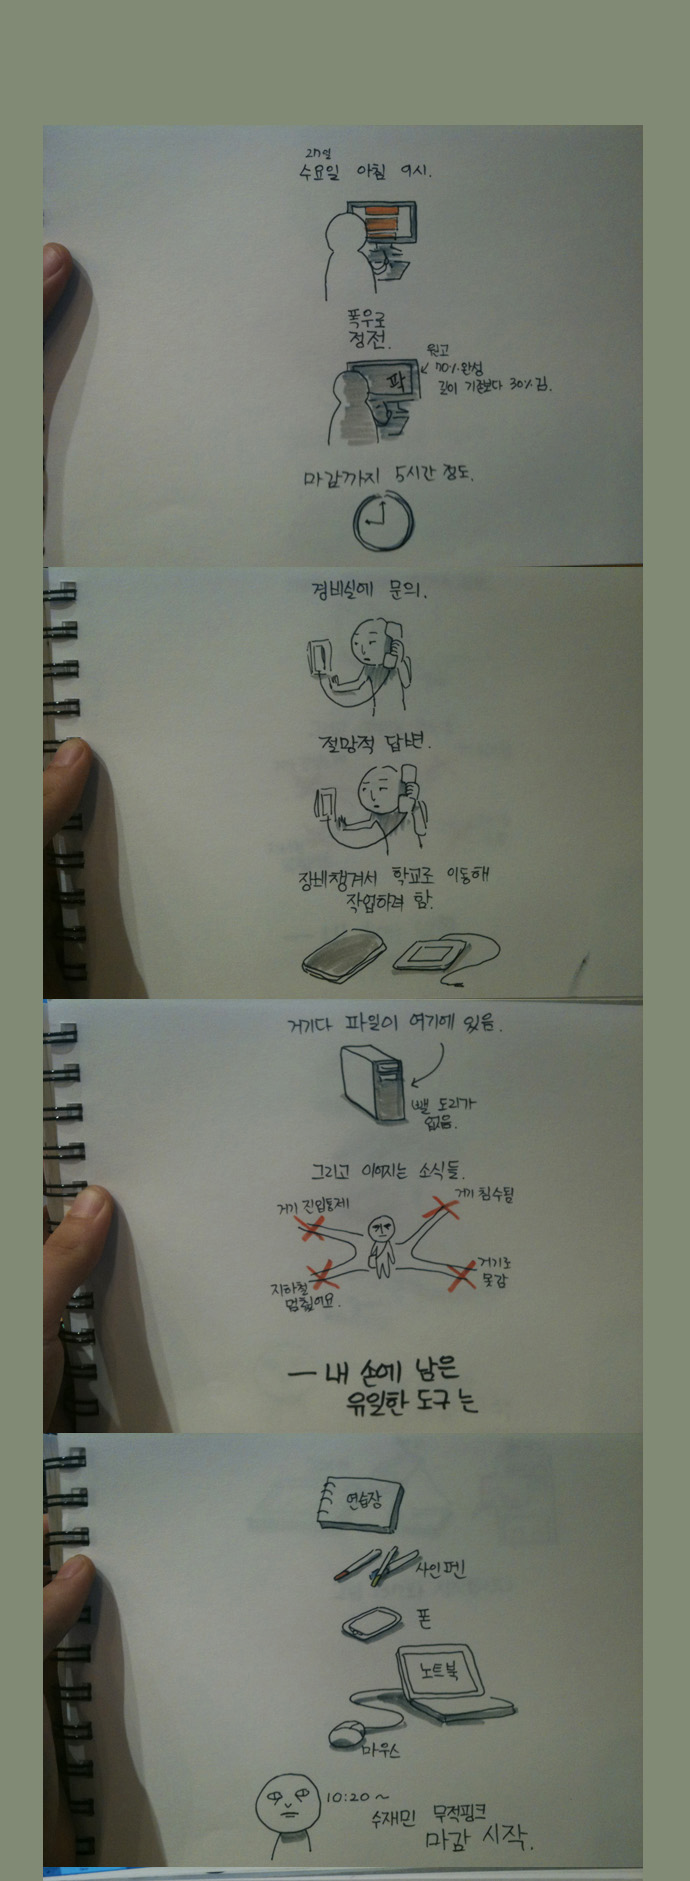 27일
수요일 아침 9시.
폭우로
정전.
원고
70% 완성
길이 기존보다 30% 김.
팍
마감까지 5시간 정도.
경비실에 문의.
절망적 답변.
장비챙겨서 학교로 이동해
작업하려 함.
거기다 파일이 여기에 있음.
뺄 도리가
없음.
그리고 이어지는 소식들.
거기 진입통제
거기 침수됨
지하철
멈췄어요.
거기로
못감
— 내 손에 남은
유일한 도구는
연습장
사인펜
폰
노트북
마우스
10:20~
수재민 무적핑크
마감 시작.